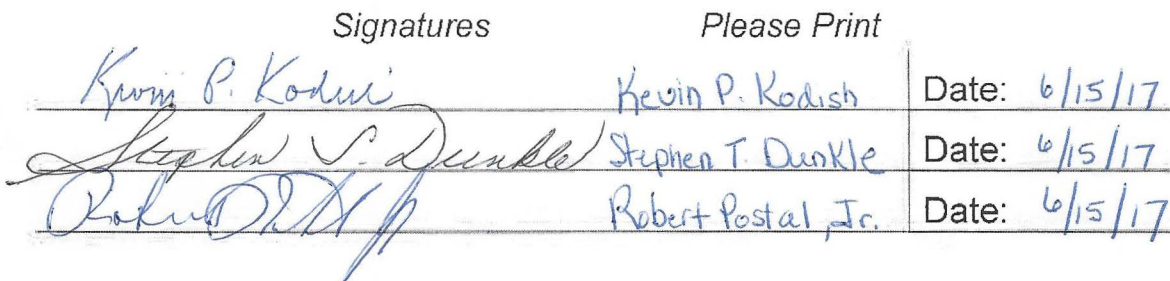 Signatures Please Print
Kevin P. Kodish Kevin P. Kodish Date: 6/15/17
Stephen T. Dunkle Stephen T. Dunkle Date: 6/15/17
Robert Jr Robert Postal, Jr. Date: 6/15/17